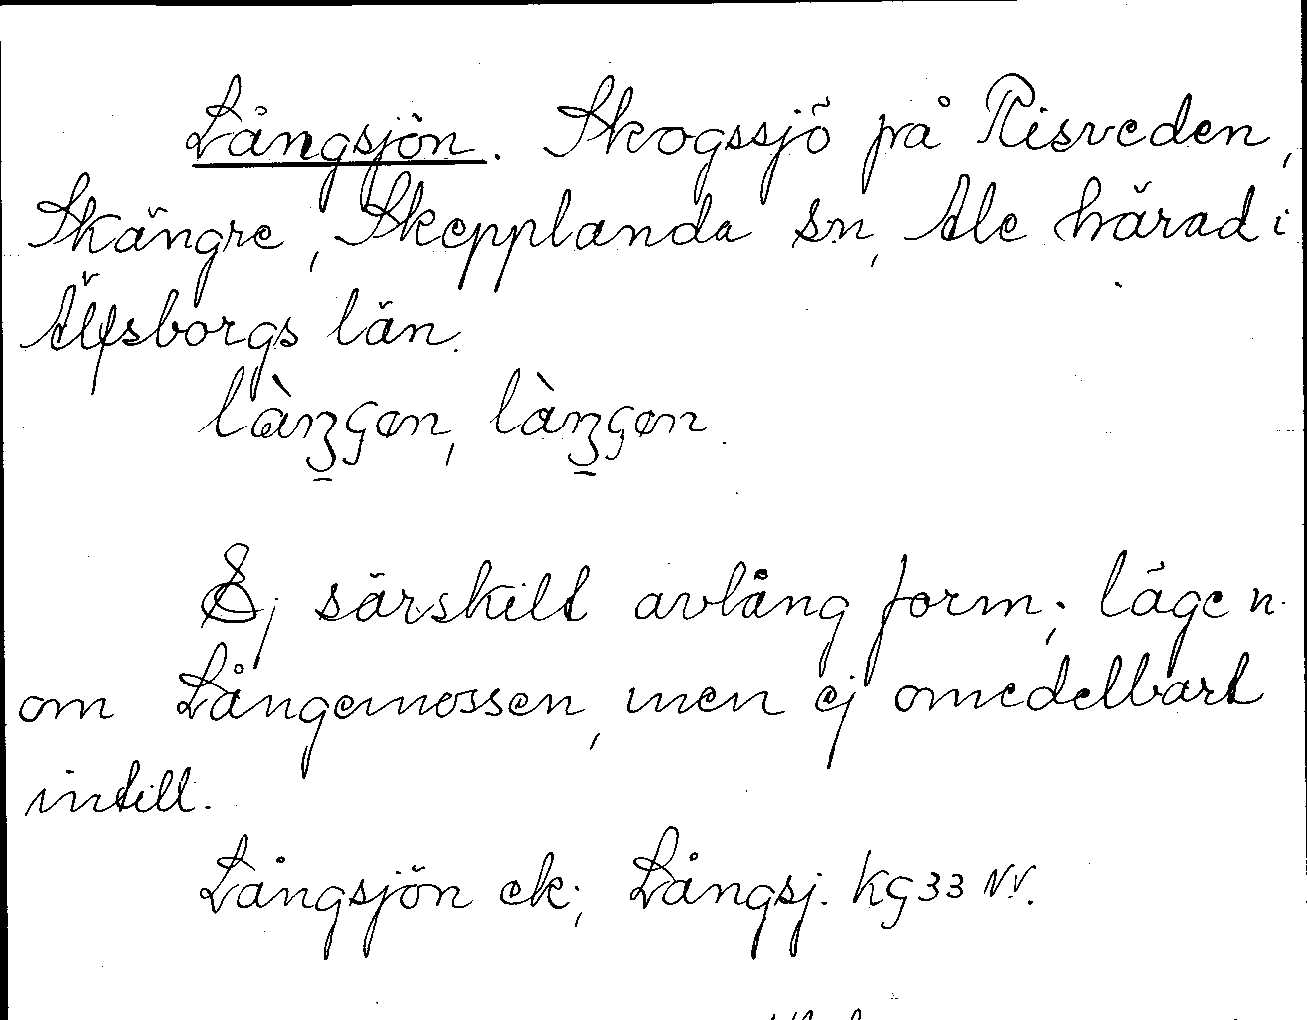 Långsjön. Skogssjö på Risveden,
Skängre, Skepplanda sn, Ale härad i
Älfsborgs län.
Ej särskilt avlång form; läge n.
om Långemossen, men ej omedelbart
intill.
Långsjön ek; Långsj. kg 33 NV.